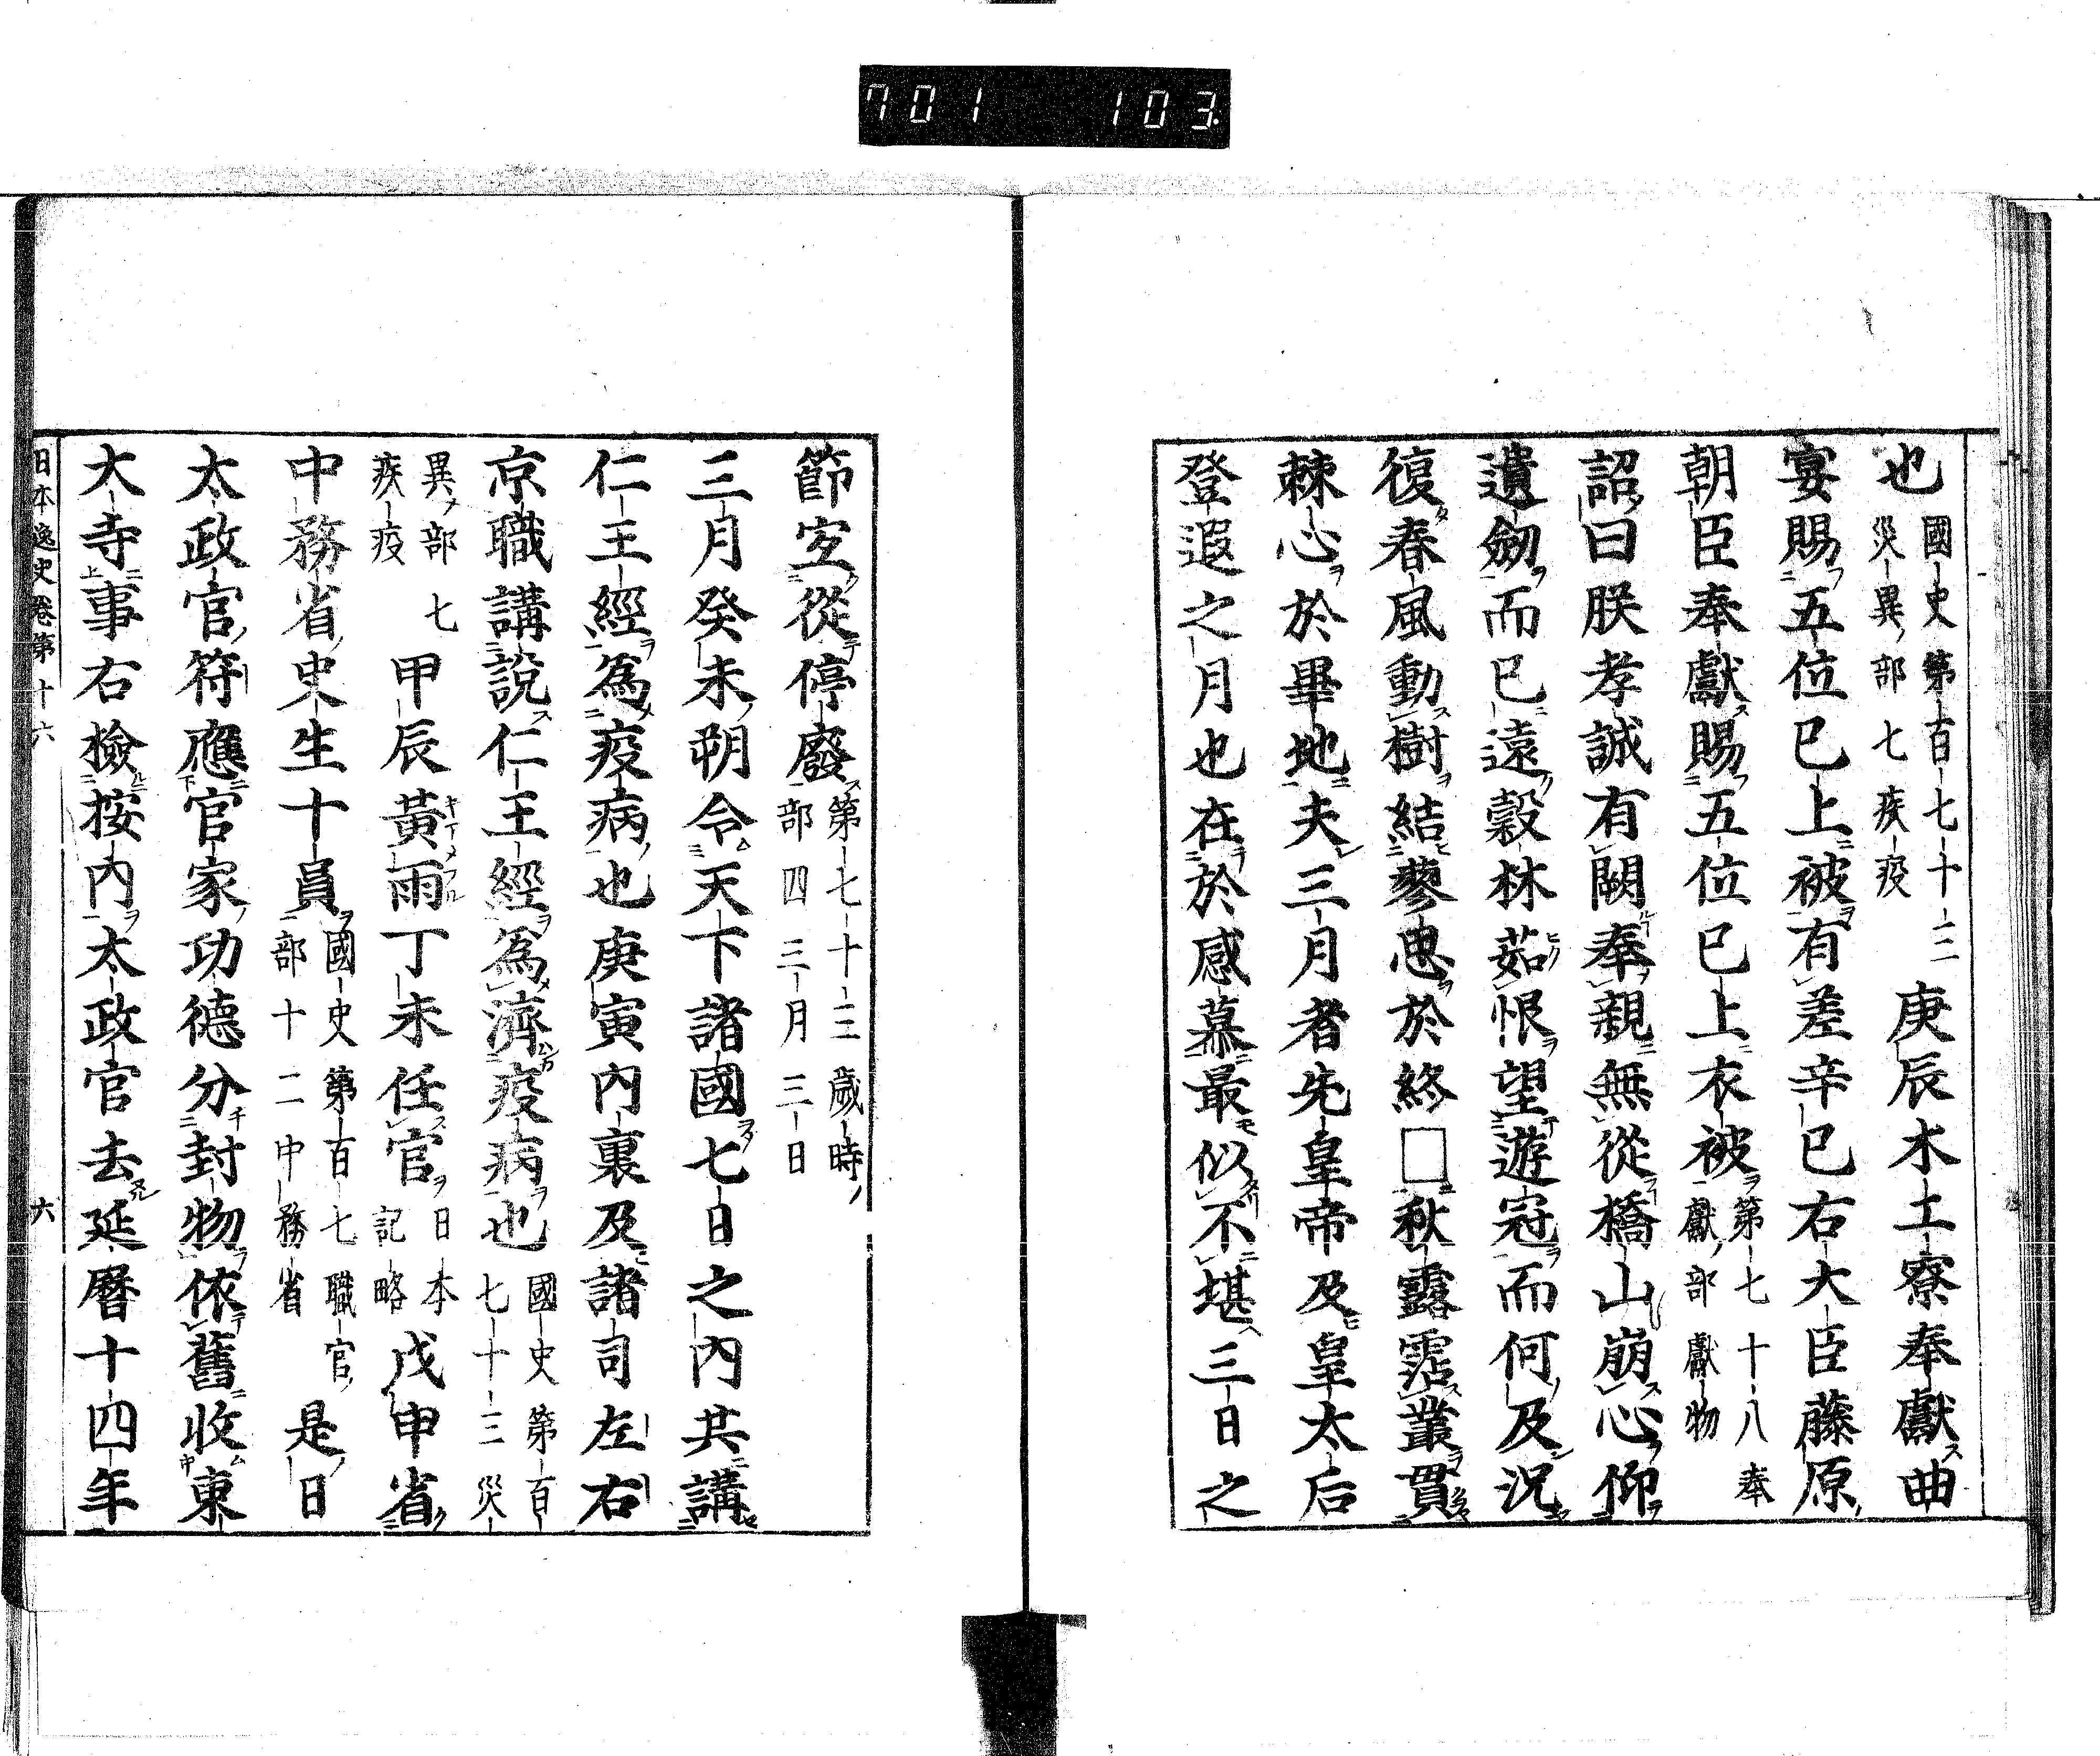 701 103
也國史第百七十三災異部七疾疫庚辰木工寮奉獻曲
宴賜五位已上被有差辛巳右大臣藤原
朝臣奉獻賜五位已上衣被第七十八奉獻部獻物
詔曰朕孝誠有闕奉親無從橋山崩心仰
遺劒而已遠穀林茹恨望遊冠而何及況
復春風動樹結蓼思於終□秋露霑叢貫
棘心於畢地夫三月者先皇帝及皇太后
登遐之月也在於感慕最似不堪三日之
節宜從停廢第七十三歲時部四三月三日
三月癸未朔令天下諸國七日之內共講
仁王經爲疫病也庚寅內裏及諸司左右
京職講說仁王經爲濟疫病也國史第百七十三災
異部七疾疫甲辰黃雨丁未任官日本記略戊申省
中務省史生十員國史第百七職官部十二中務省是日
太政官符應官家功德分封物依舊收東
大寺事右檢按內太政官去延曆十四年
日本逸史卷第十六
六